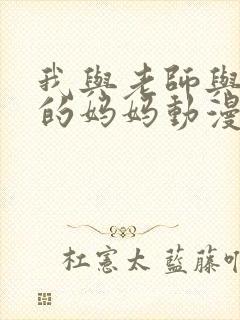 我與老師與
的妈妈動漫
杜憲太 藍藤